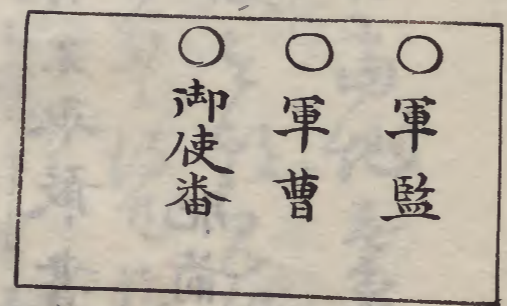 ○軍監
○軍曹
○御使番